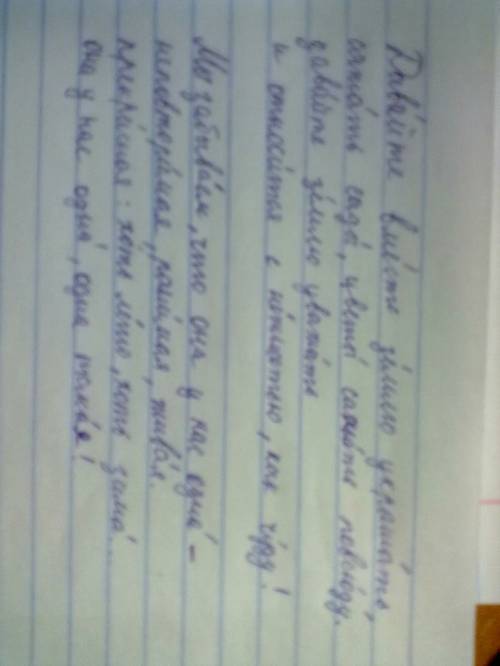 Дава́йте вме́сте зе́млю украша́ть,
сажа́ть сады́, цветы́ сажа́ть повсю́ду.
дава́йте зе́млю уважа́ть
и относи́тся с не́жностью, как чу́ду!
Мы забыва́ем, что она у нас одна́ –
неповтори́мая, рани́мая, жива́я.
прекра́сная: хоть ле́то, хоть зима́...
она у нас одна́, одна така́я!